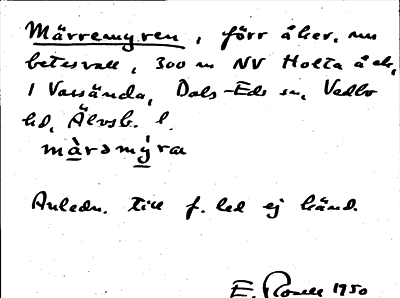 Märremyren, förr åker, nu
betesvall, 300 m NV Holta å ek.
1 Vassända, Dals-Eds sn, Vedbo
hd, Älvsb. l.
màrəmýra
Anledn. till f. led ej känd.
E. Rosell 1950